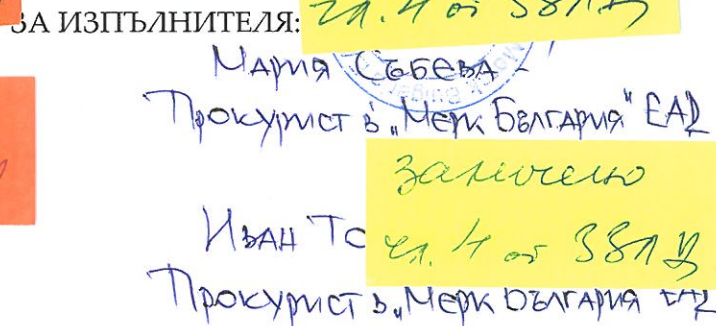 ЗА ИЗПЪЛНИТЕЛЯ:
чл. 4 от ЗЗЛД
Мария Събева -
Прокурист в „Мерк България" ЕАД
заличено
Иван То
чл. 4 от ЗЗЛД
Прокурист в „Мерк България ЕАД